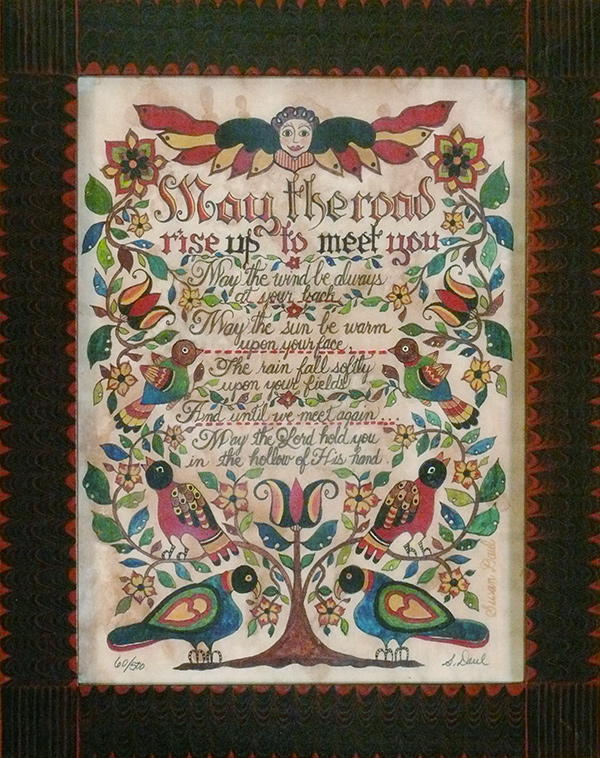 May the road
rise up to meet you
May the wind be always
at your back
May the sun be warm
upon your face,
The rain fall softly
upon your fields
And until we meet again...
May the Lord hold you
in the hollow of His hand.
Susan Daul
60/500
S. Daul